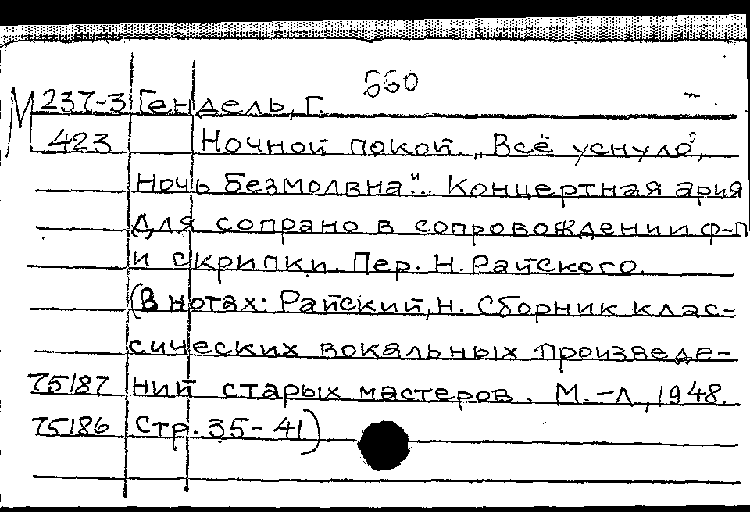 560
М 237-3 Гендель, Г.
423 Ночной покой. „Всё уснуло,
Ночь Безмолвна". Концертная ария
для сопрано в сопровождении ф-п
и скрипки. Пер. Н. Райского.
(В нотах: Райский, Н. Сборник клас-
сических вокальных произведе-
75187 ний старых мастеров. М.-Л, 1948.
75186 Стр. 35-41)